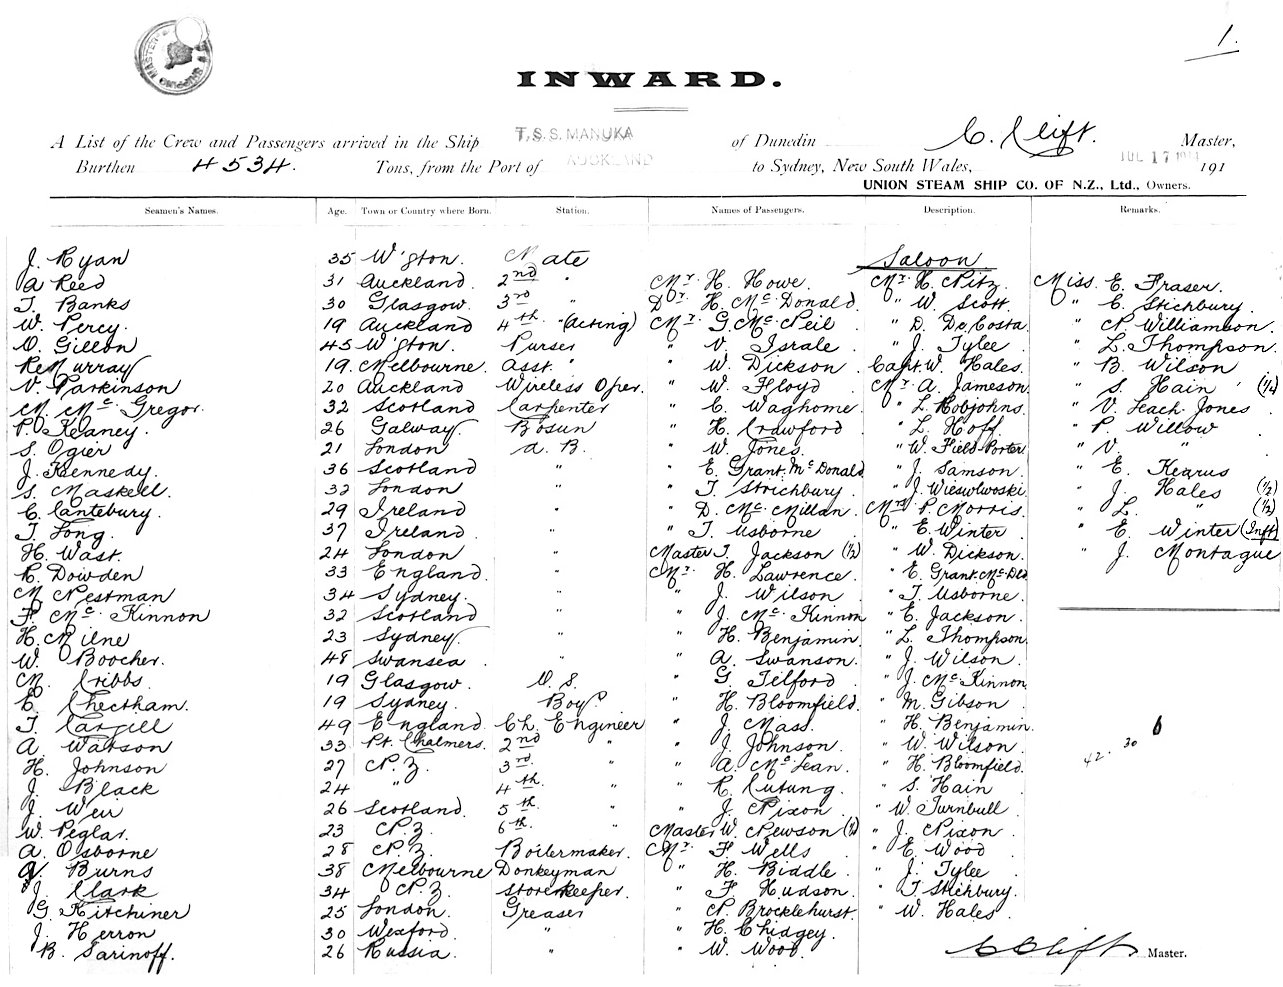 1.
INWARD.
A List of the Crew and Passengers arrived in the Ship T.S.S. MANUKA of Dunedin C. Clift. Master,
Burthen 4534. Tons, from the Port of AUCKLAND to Sydney, New South Wales, JUL 17 191
UNION STEAM SHIP CO. OF N.Z., Ltd., Owners.
Seamen's Names. Age. Town or Country where Born. Station. Names of Passengers. Description. Remarks.
J. Ryan 35 W'gton. Mate Saloon.
A Reed 31 Auckland. 2nd " Mr. H. Howe. Mr. H. Nitz. Miss. E. Fraser.
T. Banks 30 Glasgow. 3rd " Dr. H. McDonald. " W. Scott. " E. Stichbury.
W. Percy. 19 Auckland 4th " (Acting) Mr. G. McNeil " D. DeCosta. " N. Williamson.
O. Gillon 45 W'gton. Purser " V. Israle. " J. Tylee " L. Thompson.
R. Murray 19. Melbourne. Asst. " " W. Dickson. Capt. W. Hales. " B. Wilson
V. Parkinson 20 Auckland Wireless Oper. " W. Floyd. Mr. A. Jameson. " S. Hain (1/4)
M. McGregor. 32 Scotland Carpenter " C. Waghorne. " L. Robjohns. " V. Leach-Jones
P. Keaney. 26 Galway. Bosun " H. Crawford " L. Hoff " P. Willow
S. Ogier 21 London A. B. " W. Jones. " W. Field-Porter " V. "
J. Kennedy. 36 Scotland " " E. Grant. McDonald " J. Samson. " E. Kearus
S. Maskell. 32 London " " T. Strichbury. " J. " J. Hales (1/2)
C. Cantebury. 29 Ireland " " D. McMillan. Mrs. P. Morris. " L. " (1/2)
T. Long. 37 Ireland. " " T. Usborne. " E. Winter " E. Winter (Inft)
H. Wast. 24 London " Master T. Jackson (1/2) " W. Dickson. " J. Montague
R. Dowden 33 England. " Mr. H. Lawrence. " E. Grant. McDld
M. Nestman 34 Sydney. " " J. Wilson " T. Usborne.
F. McKinnon 32 Scotland " " J. McKinnon " E. Jackson.
H. Milne 23 Sydney. " " H. Benjamin. " L. Thompson.
W. Boocher. 48 Swansea " " A. Swanson. " J. Wilson
M. Cribbs. 19 Glasgow. O. S. " G. Telford " J. McKinnon
C. Cheetham. 19 Sydney. Boy. " H. Bloomfield. " M. Gibson
T. Cargill 49 England. Ch. Engineer " J. Mass. " H. Benjamin.
A. Watson 33 Pt. Chalmers. 2nd " " J. Johnson. " W. Wilson.
H. Johnson 27 N.Z. 3rd. " " A. McLean. " H. Bloomfield.
J. Black 24 " 4th. " " R. Cutung. " S. Hain
J. Weir 26 Scotland. 5th. " " J. Nixon " W. Turnbull
W. Peglar. 23 N.Z. 6th. " Master W. Newson (1/2) " J. Nixon
A. Osborne 28 N.Z. Boilermaker. Mr. F. Wells " E. Wood
A. Burns 38 Melbourne Donkeyman " H. Biddle " J. Tylee
J. Clark 34 N.Z. Storekeeper. " F. Hudson. " T. Stichbury.
G. Kitchiner 25 London. Greaser " N. Brocklehurst. " W. Hales
J. Herron 30 Wexford. " " H. Chidgey.
B. Sarinoff. 26 Russia. " " W. Wood.
42. 30 6
C Clift Master.